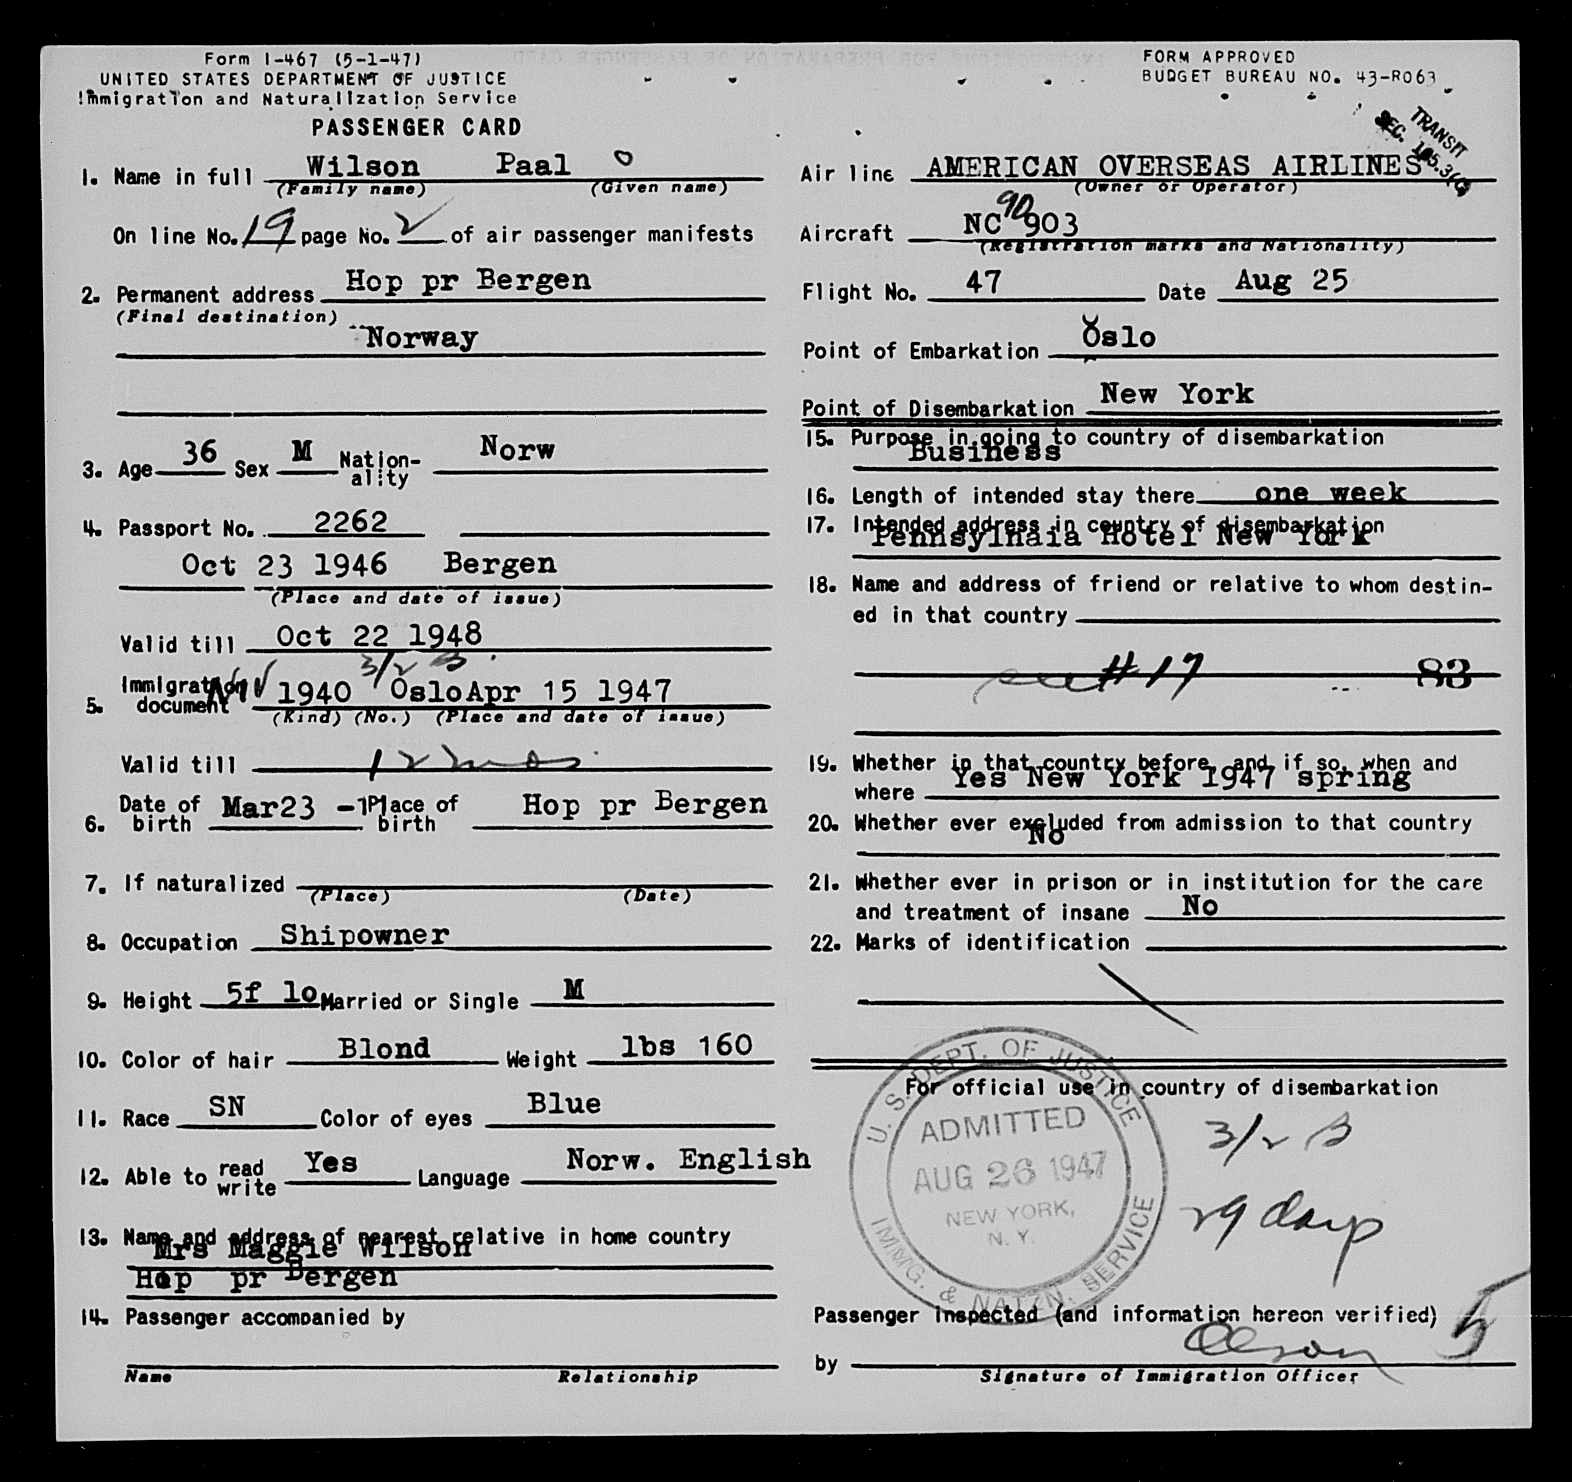 Form I-467 (5-1-47)
UNITED STATES DEPARTMENT OF JUSTICE
Immigration and Naturalization Service
PASSENGER CARD
1. Name in full Wilson Paal
(Family name) (Given name)
On line No. 19 page No. 2 of air passenger manifests
2. Permanent address Hop pr Bergen
(Final destination)
Norway
3. Age 36 Sex M Nation-ality Norw
4. Passport No. 2262
Oct 23 1946 Bergen
(Place and date of issue)
Valid till Oct 22 1948
3/2 B
5. Immigration document 1940 Oslo Apr 15 1947
(Kind) (No.) (Place and date of issue)
Valid till 12 mos.
6. Date of birth Mar23 -1 Place of birth Hop pr Bergen
7. If naturalized
(Place) (Date)
8. Occupation Shipowner
9. Height 5f 10 Married or Single M
10. Color of hair Blond Weight lbs 160
11. Race SN Color of eyes Blue
12. Able to read write Yes Language Norw. English
13. Name and address of nearest relative in home country
Mrs Maggie Wilson
Hop pr Bergen
14. Passenger accompanied by
Name Relationship
FORM APPROVED
BUDGET BUREAU NO. 43-R063
TRANSIT
SEC.
Air line AMERICAN OVERSEAS AIRLINES
(Owner or Operator)
90
Aircraft NC 903
(Registration marks and Nationality)
Flight No. 47 Date Aug 25
Point of Embarkation Oslo
Point of Disembarkation New York
15. Purpose in going to country of disembarkation
Business
16. Length of intended stay there one week
17. Intended address in country of disembarkation
Pennsylnaia Hotel New York
18. Name and address of friend or relative to whom destin-
ed in that country
see #17 83
19. Whether in that country before, and if so, when and
where Yes New York 1947 spring
20. Whether ever excluded from admission to that country
No
21. Whether ever in prison or in institution for the care
and treatment of insane No
22. Marks of identification
For official use in country of disembarkation
U. S. DEPT. OF JUSTICE
ADMITTED
AUG 26 1947
NEW YORK,
N. Y.
IMMG. & NATZN. SERVICE
3/2 B
29 days
Passenger inspected (and information hereon verified)
5
by Olson
Signature of Immigration Officer